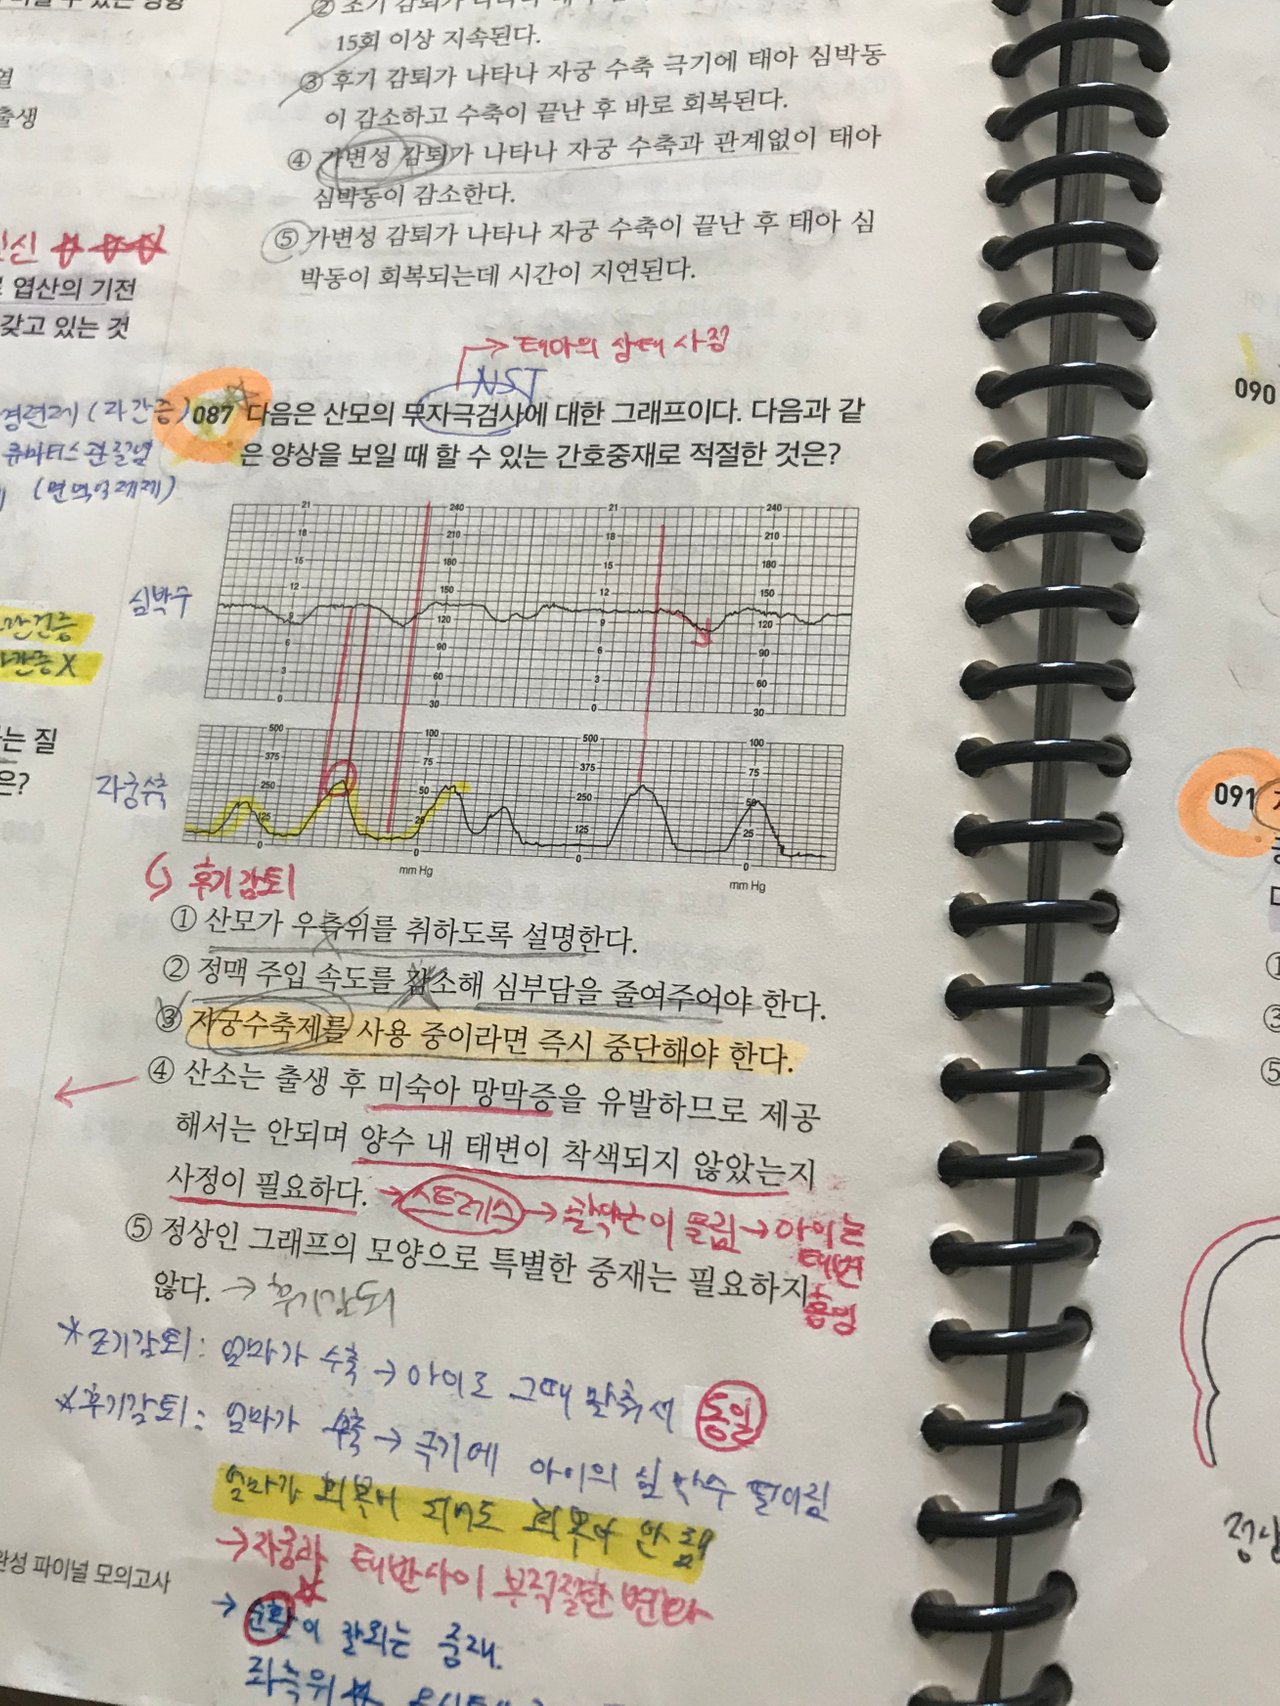 15회 이상 지속된다.
③ 후기 감퇴가 나타나 자궁 수축 극기에 태아 심박동
이 감소하고 수축이 끝난 후 바로 회복된다.
④ 가변성 감퇴가 나타나 자궁 수축과 관계없이 태아
심박동이 감소한다.
⑤ 가변성 감퇴가 나타나 자궁 수축이 끝난 후 태아 심
박동이 회복되는데 시간이 지연된다.
출생
엽산의 기전
갖고 있는 것
→ 태아의 상태 사정
NST
087 다음은 산모의 무자극검사에 대한 그래프이다. 다음과 같
은 양상을 보일 때 할 수 있는 간호중재로 적절한 것은?
심박수
21 240 21 240
18 210 18 210
15 180 15 180
12 150 12 150
9 120 9 120
6 90 6 90
3 60 3 60
0 30 0 30
자궁수축
500 100 500 100
375 75 375 75
250 50 250 50
125 25 125 25
0 0 0 0
mm Hg mm Hg
후기감퇴
① 산모가 우측위를 취하도록 설명한다.
② 정맥 주입 속도를 감소해 심부담을 줄여주어야 한다.
③ 자궁수축제를 사용 중이라면 즉시 중단해야 한다.
④ 산소는 출생 후 미숙아 망막증을 유발하므로 제공
해서는 안되며 양수 내 태변이 착색되지 않았는지
사정이 필요하다. → 스트레스 → 괄약근이 풀림 → 아이는
태변
흡입
⑤ 정상인 그래프의 모양으로 특별한 중재는 필요하지
않다. → 후기감퇴
*조기감퇴: 엄마가 수축 → 아이도 그때 맞춰서 동일
*후기감퇴: 엄마가 수축 → 극기에 아이의 심박수 떨어짐
엄마가 회복이 되어도 회복이 안 돼
→ 자궁과 태반사이 부적절한 변화
→ 순환이 잘되는 중재.
좌측위
완성 파이널 모의고사
는 질
은?
090
091
①
③
⑤